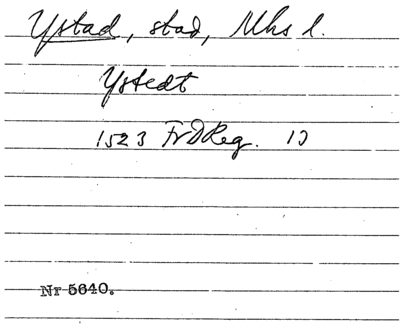 Ystad, stad, Mhs l.
Ystedt
1523 FrDReg. 10
Nr 5640.